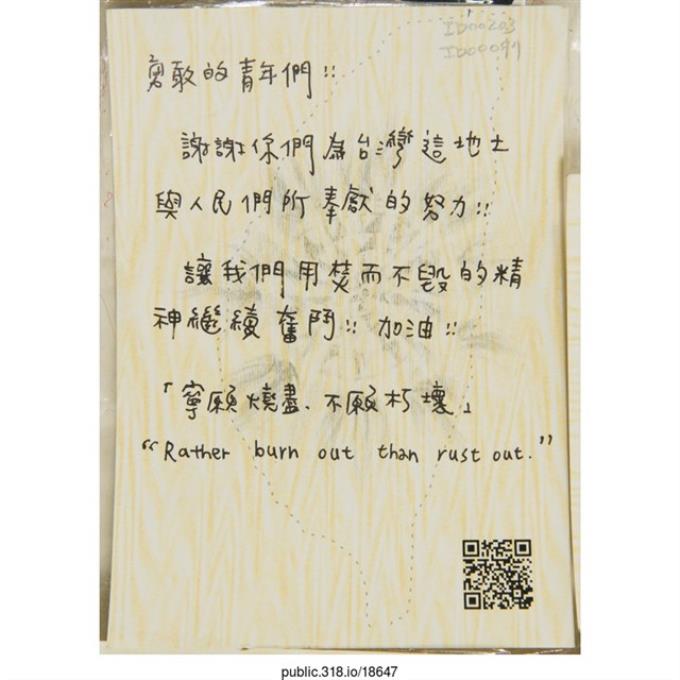 ID00203
ID00091
勇敢的青年們!!
謝謝你們為台灣這地土
與人民們所奉獻的努力!!
讓我們用焚而不毀的精
神繼續奮鬥!! 加油!!
「寧願燒盡、不願朽壞」
“Rather burn out than rust out.”
public.318.io/18647